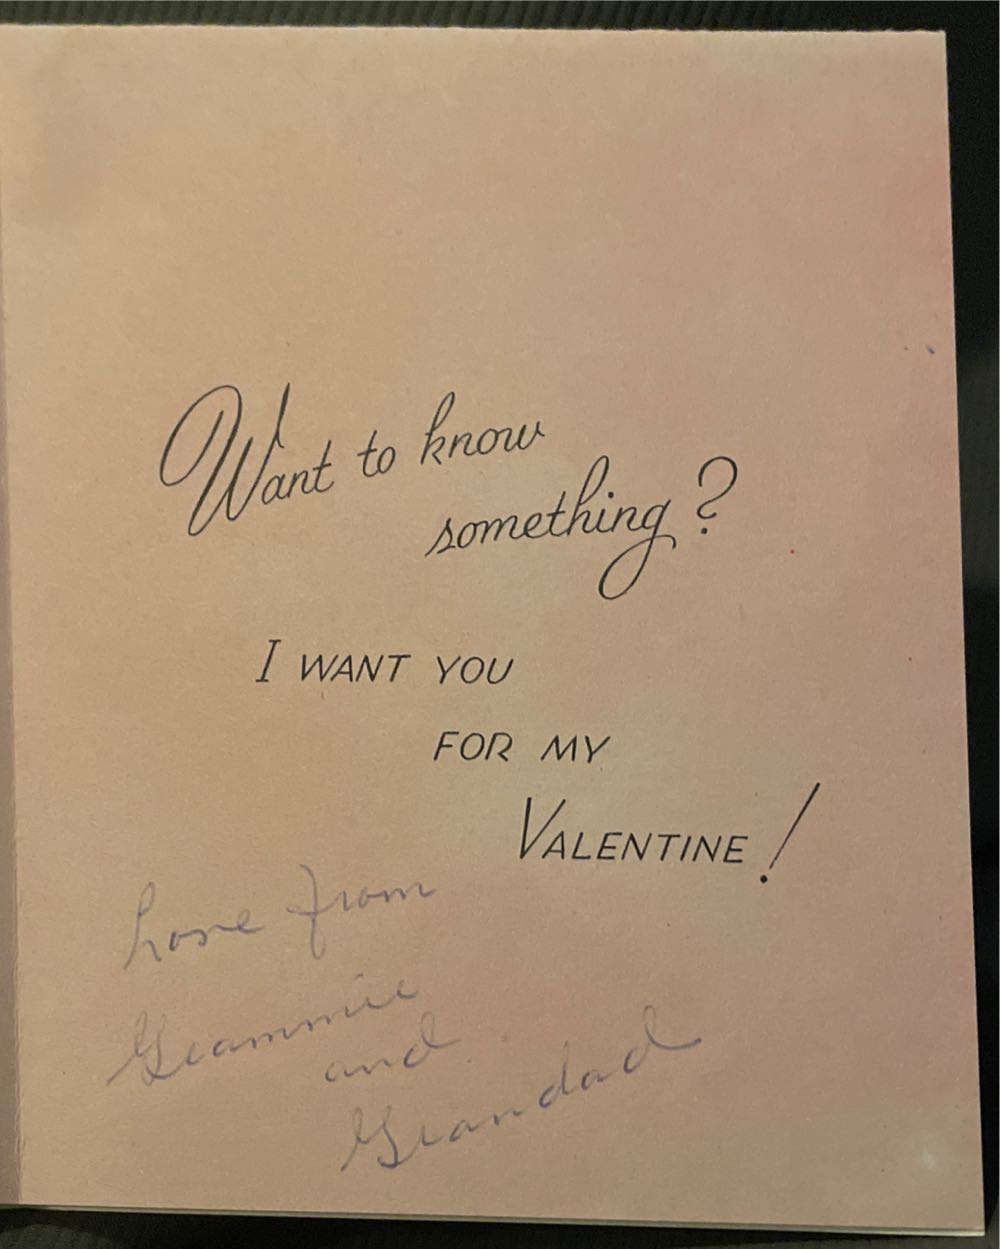 Want to know
something?
I WANT YOU
FOR MY
VALENTINE!
Love from
Grammie
and
Grandad